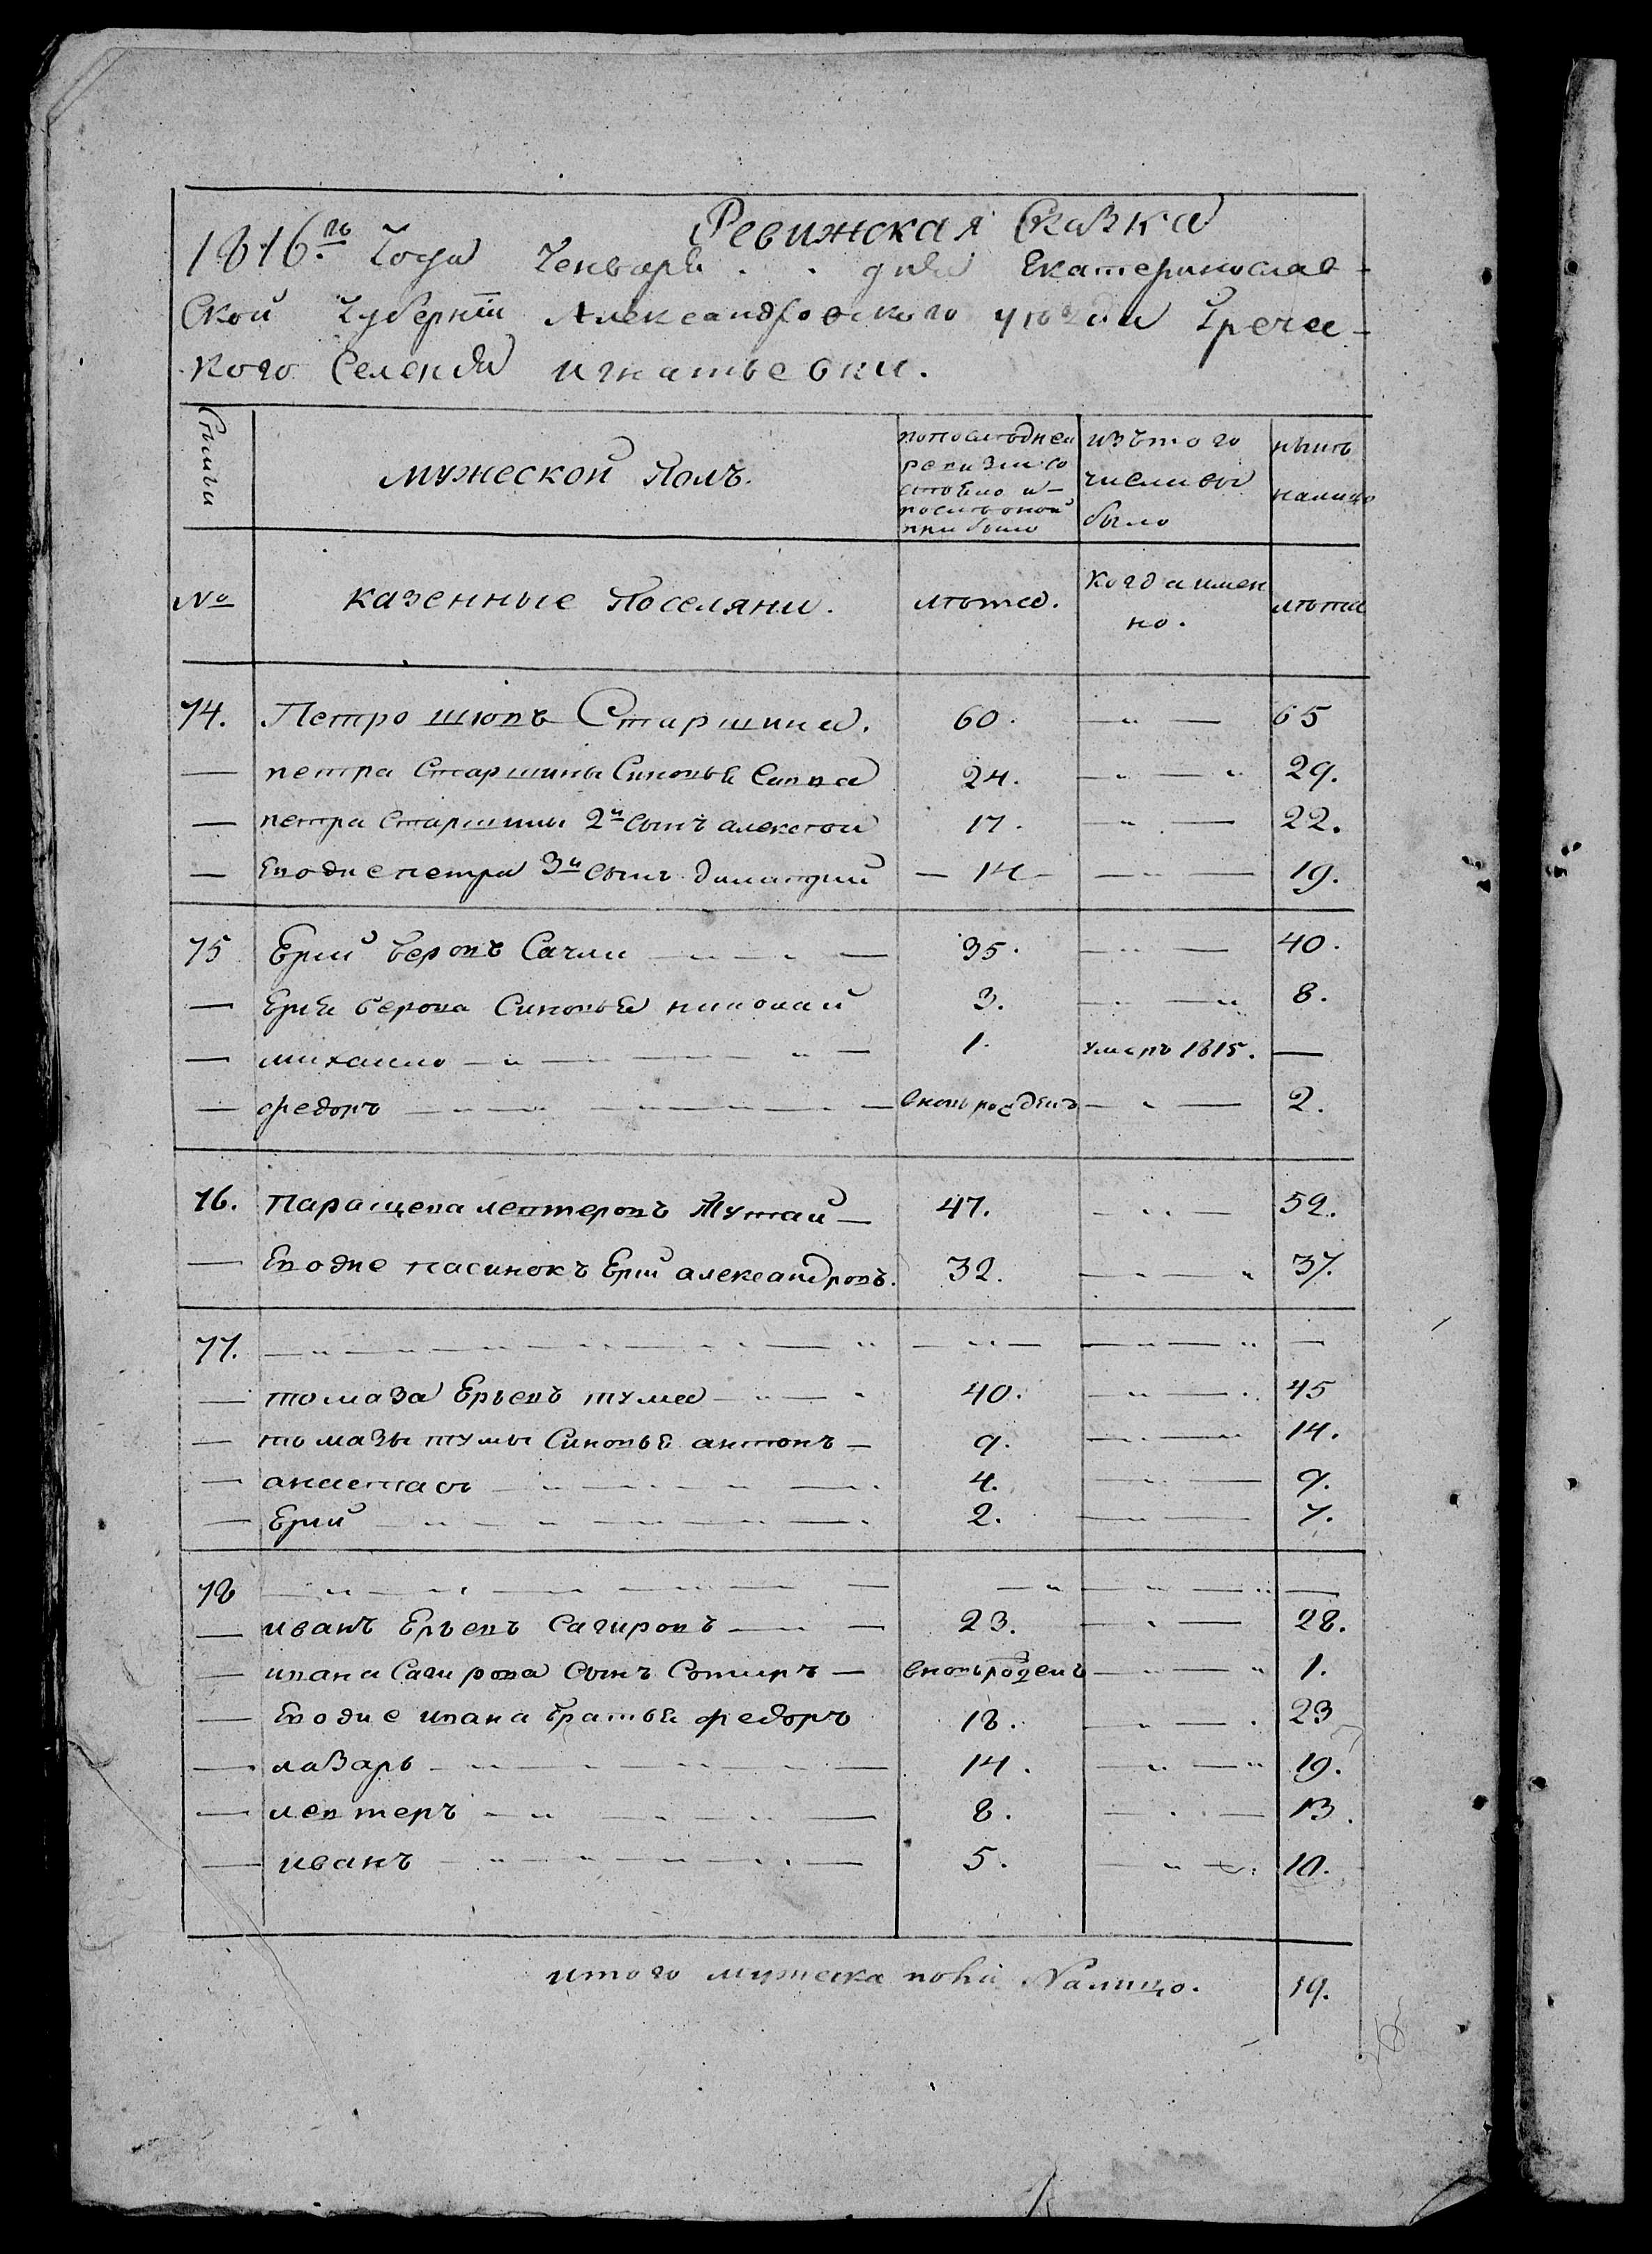 Ревижская Сказка
1816.го Года Генваря . . дня Екатеринослав-
ской Губерніи Александровского уѣзда Гречес-
кого селенія игнатьевки.
мужеской Полъ.
попоследней ревизии состояло и после оной прибыло
изътого числа выбыло
нынѣ налицо
№ казенные Поселяни. лѣта. Когда имен но. лѣта
74. Петро шюпъ Старшина. 60. — „ — 65
— петра Старшины Синовья Савва 24. — „ — „ 29.
— петра Старшины 2й сынъ алексей 17. — „ — 22.
— Еводие петра 3й сынъ — 14 — — „ — 19.
75 Ерий беровъ Сачли — „ — „ — 35. — „ — 40.
— Ерия берова Синовья николай 3. — „ — „ 8.
— михаило — „ — — — „ — 1. умеръ 1815. —
— федоръ — „ — „ — „ — „ — вновьрожденъ — „ — 2.
76. Паращева левтеровъ Мутаи — 47. — „ — 52.
— Еводие пасинокъ Ерий александровъ. 32. — „ — „ 37.
77. — „ — „ — „ — „ — „ — „ — — „ — „ —
— томаза Ерьевъ тума — „ — „ 40. — „ — „ 45
— томазы тумы Синовья антонъ — 9. — „ — „ 14.
— анастасъ — „ — „ — „ — „ 4. — „ — 9.
— Ерий — „ — „ — „ — „ 2. — „ — 7.
78 — „ — „ — „ — „ — — „ — „ — „ —
— иванъ Ерьевъ Сагировъ — „ — 23. — „ — 28.
— ивана Сагирова Сынъ Сотиръ — вновьрожденъ — „ — „ 1.
— Еводие ивана братья федоръ 18. — „ — „ 23
— лазарь — „ — „ — „ — „ — 14. — „ — „ 19.
— левтеръ — „ — „ — „ — 8. — „ — 13.
— иванъ — „ — „ — „ — „ — 5. — „ — „ 10.
итого мужеска пола Налицо. 19.